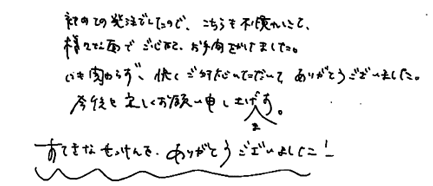 初めての発注でしたので、こちらも不慣れにて、
様々な面でご迷惑、お手間をかけました。
にも関わらず、快くご対応いただいて ありがとうございました。
今後も宜しくお願い申し上げます。
すてきなせっけんを、ありがとうございました!